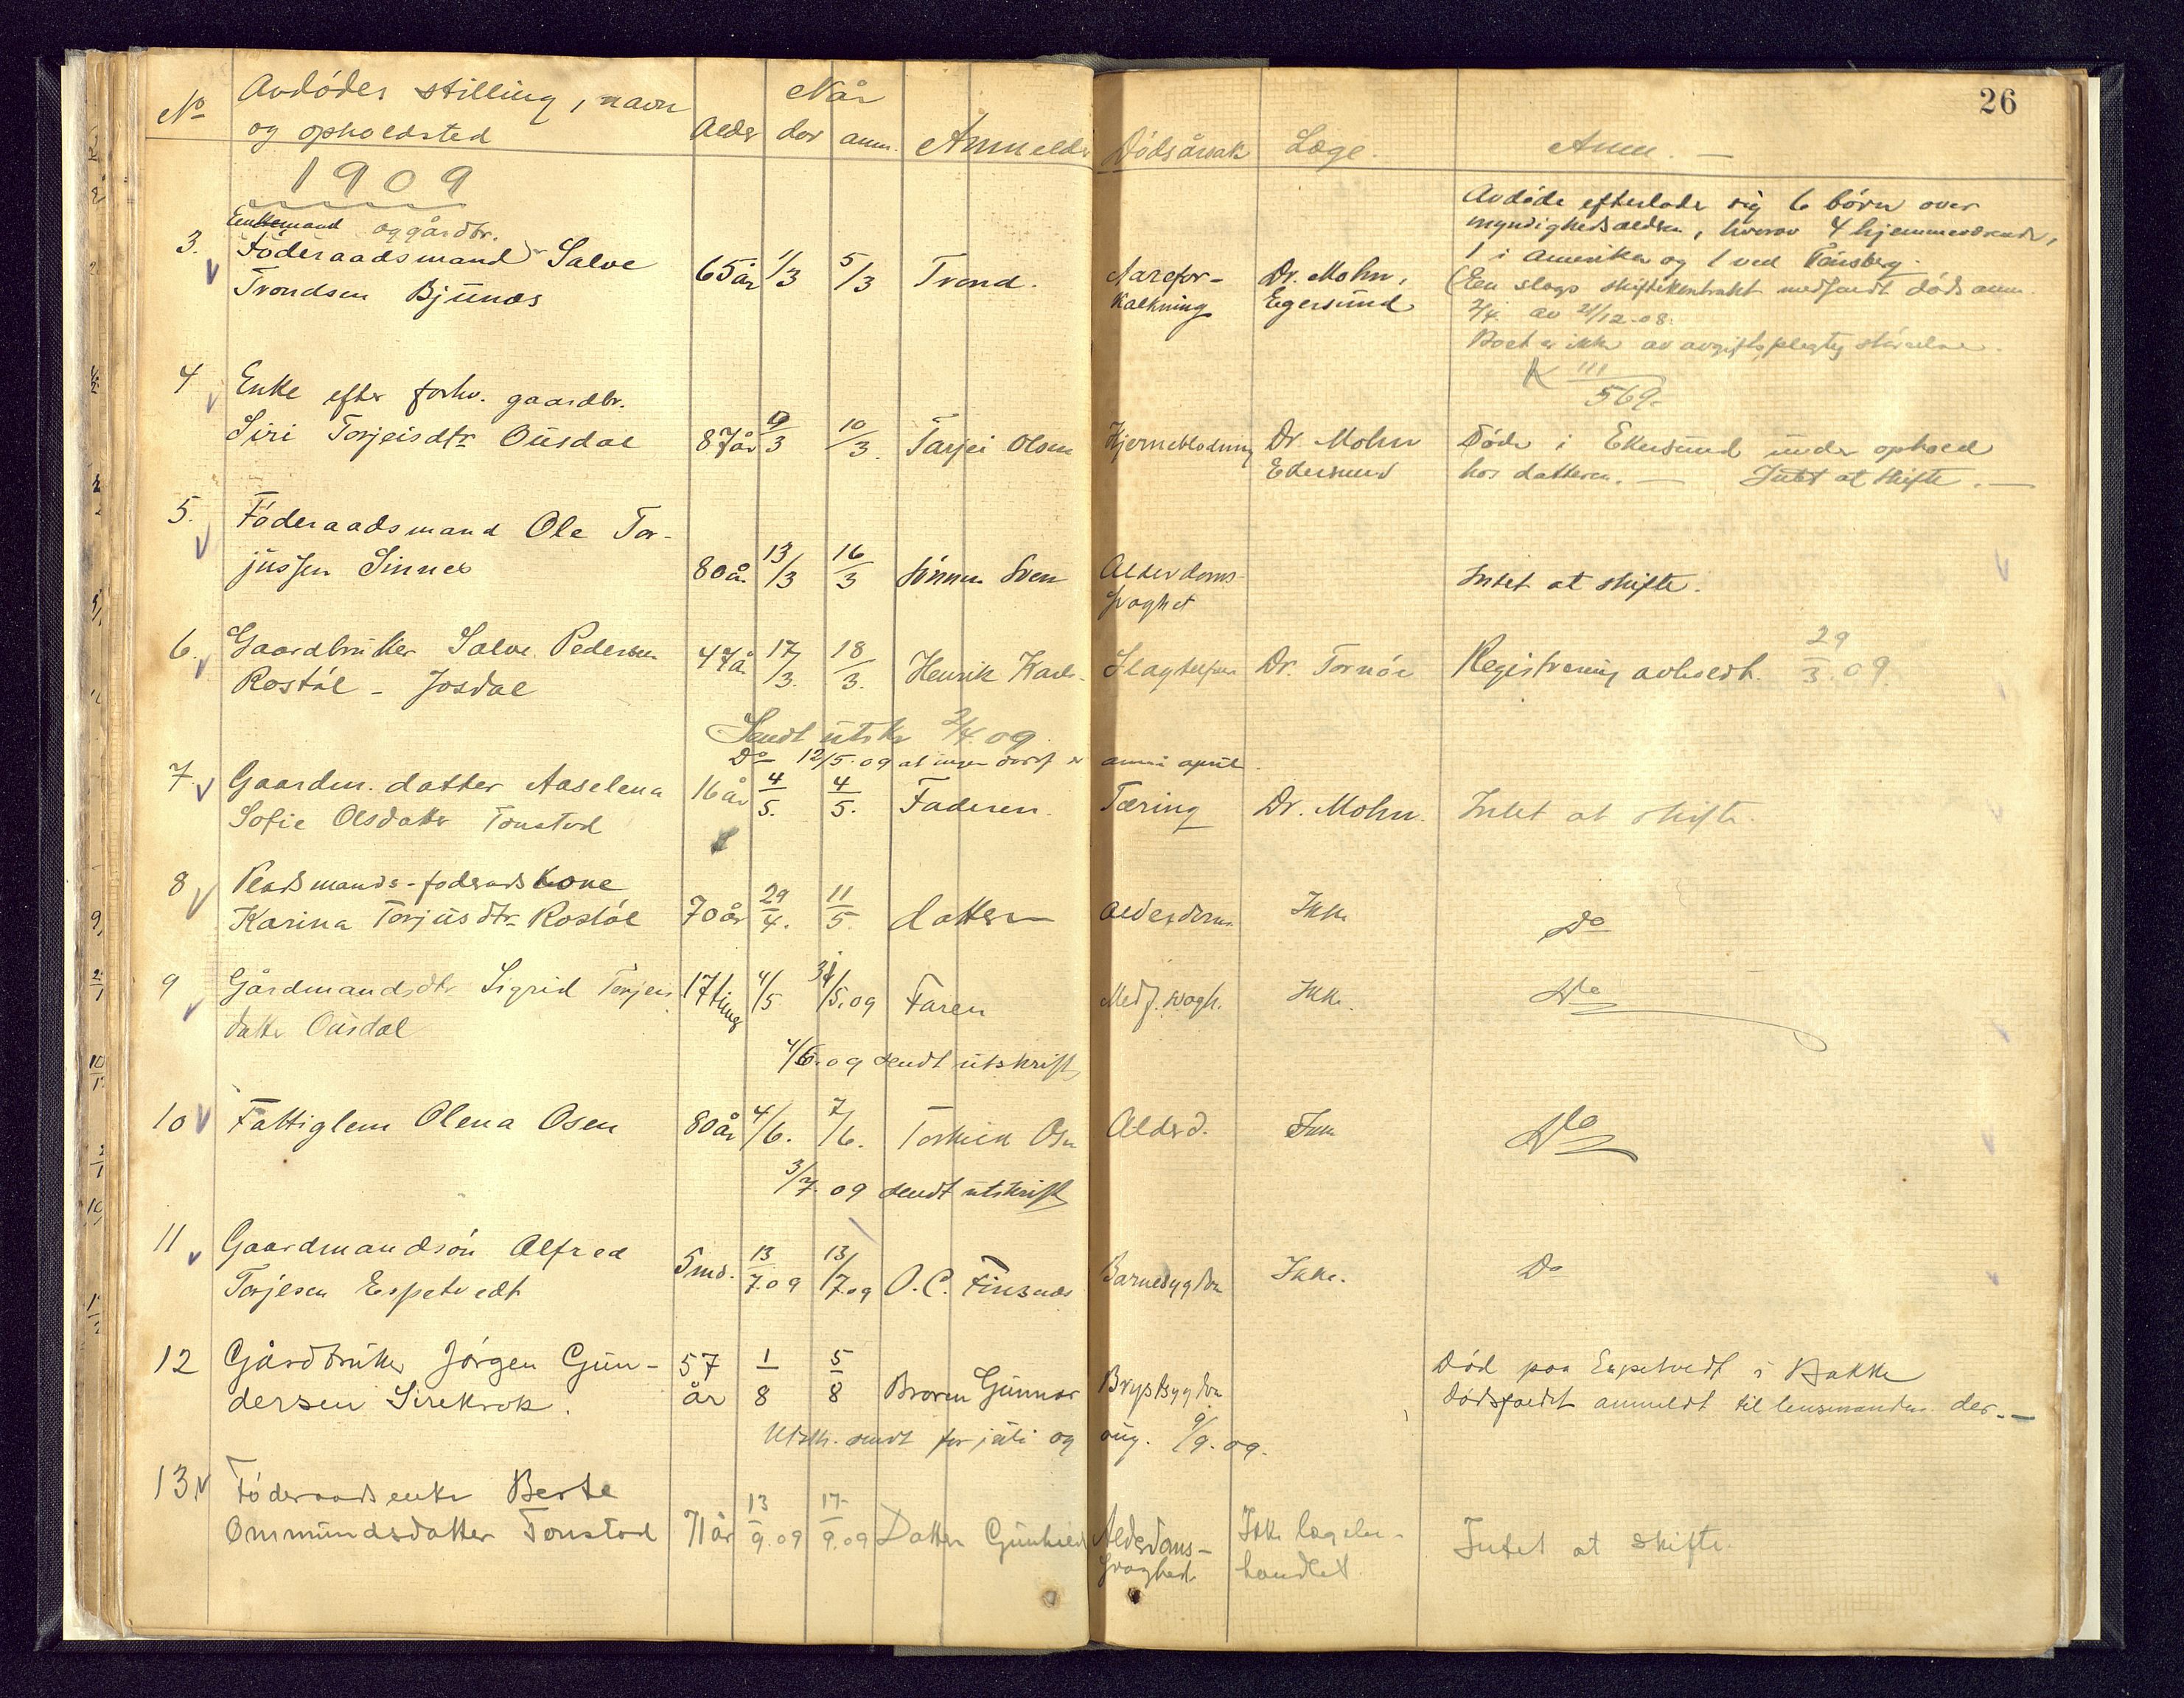 26
No Avdødes stilling, navn
og opholdsted
Alder
Når
dør anm. Anmelder
Dødsårsak Læge. Anm. —
1909
Enkemand og gårdbr.
3. Föderaadsmand Salve
Trondsen Bjunes
65 år 1/3 5/3 Trond.
Aarefor-
kalkning
Dr. Mohn,
Egersund
Avdøde efterlode sig 6 børn over
myndighedsalder, hvorav 4 hjemmeværende,
1 i Amerika og 1 ved Tønsberg.
(Een slags skiftekontrakt medfædt døds anm.
2/4. av 21/12-08.
Boet er ikke av avgiftspligtig størrelse.
111
569.
4 Enke efter forhv. gaardbr.
Siri Torjeisdtr Ousdal
87 år 9/3 10/3. Tarjei Olsen
Hjerneblødning Dr Mohn
Ekersund
Døde i Ekersund under ophold
hos datteren. — Intet at skifte. —
5. Föderaadsmand Ole Tor-
jussen Sinnes
80 år 13/3 16/3 Sönnen Sven
Alderdoms-
svaghet
Intet at skifte.
6. Gaardbruker Salve Pedersen
Rostöl - Josdal
47 år 17/3. 18/3. Henrik Karls.
Dr. Tornör Registrering avholdt. 29/3.09.
Sendt utskr 2/4.09
Do 12/5.09 at ingen dødsf er anm i april.
7. Gaardm. datter Aaselena
Sofie Olsdatter Tonstad
16 år 4/5. 4/5. Faderen.
Tæring Dr. Mohn. Intet at skifte.
8 Pladsmands-föderadskone
Karina Torjusdtr Rostöl
70 år 29/4. 11/5. datteren
Alderdoms. Ikke Do
9 Gårdmandsdtr Sigrid Torjeis
datter Ousdal
17 timer 4/5 /5.09 Faren
Medf. svagh. Ikke. Do
4/6.09 sendt utskrift
10 Fattiglem Olena Osen
80 år 4/6. 7/6. Osen
Alderd. Ikke Do
3/7.09 sendt utskrift
11 Gaardmandsön Alfred
Torjesen Espetvedt
5 md. 13/7.09 13/7.09 O. C. Finsnes
Barnesygdom Ikke. Do
12 Gårdbruker Jörgen Gun-
dersen Sirekrok.
57
år
1/8 5/8 Broren Gunnar
Brystsygdom
Død paa Espetvedt i Bakke
Dödsfaldet anmeldt til lensmanden der. —
Utskr. sendt for juli og aug. 9/9.09.
13 Föderaadsenke Berte
Ommundsdatter Tonstad
71 år 13/9.09 17/9.09 Datter Gunhild
Alderdoms-
svaghed
Ikke lægebe-
handlet.
Intet at skifte.